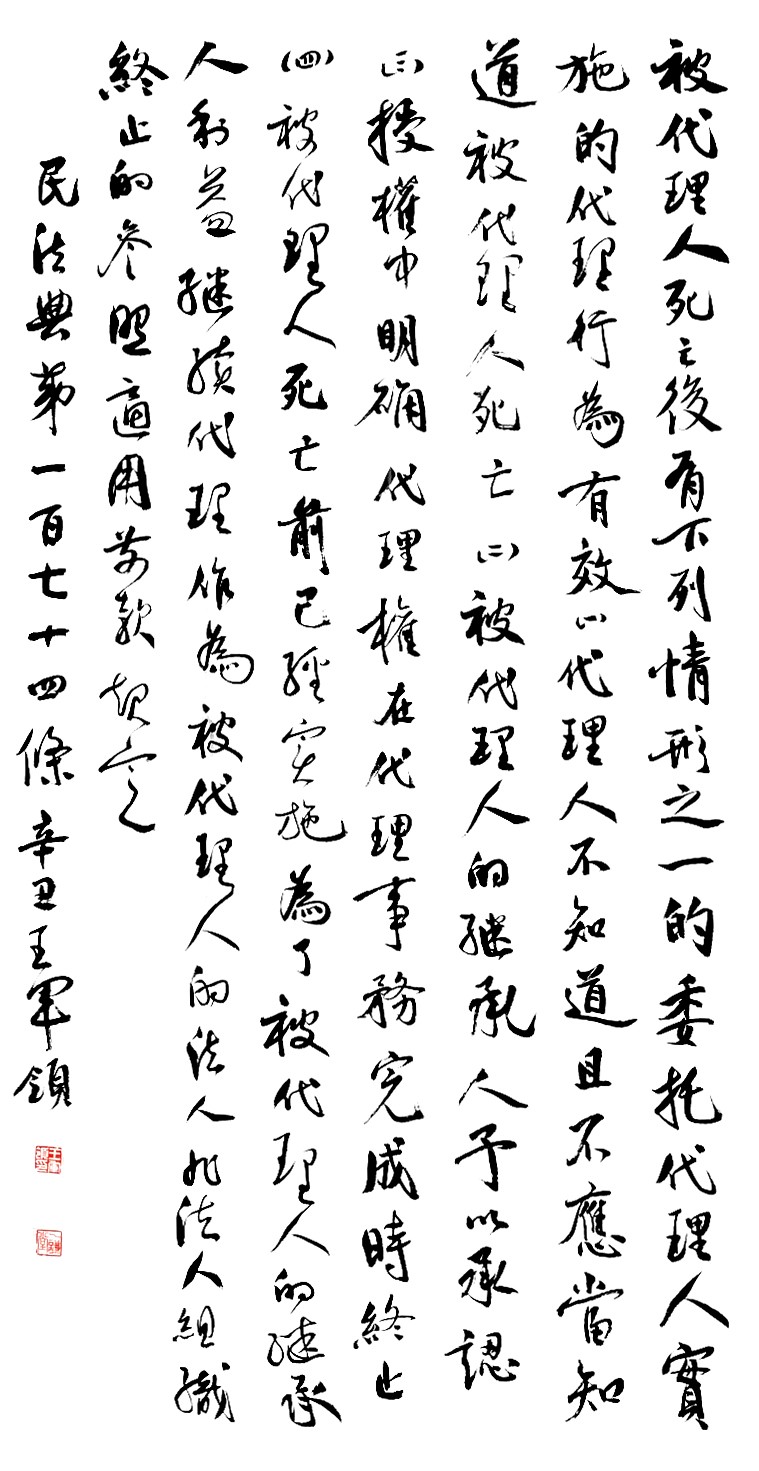 被代理人死亡後有下列情形之一的委托代理人實
施的代理行為有效(一)代理人不知道且不應當知
道被代理人死亡(二)被代理人的继承人予以承認
(三)授權中明确代理權在代理事務完成時終止
(四)被代理人死亡前已經实施為了被代理人的继承
人利益继續代理作為被代理人的法人非法人組織
終止的参照適用前款規定
民法典第一百七十四條辛丑王軍領